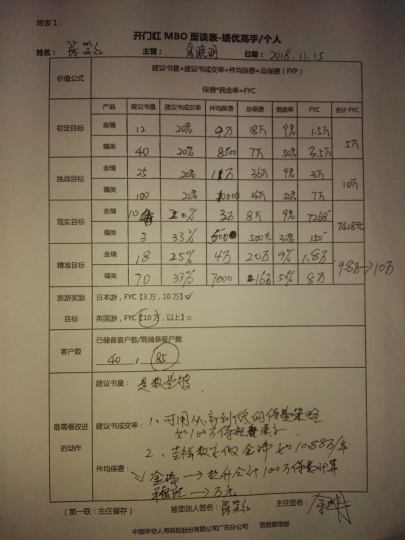 附表1：
开门红 MBO 面谈表-绩优高手/个人
姓名： 主管： 日期：2018.11.15
价值公式 建议书量×建议书成交率×件均保费=总保费（FYP）
保费*佣金率=FYC
产品 建议书量 建议书成交率 件均保费 总保费 佣金率 FYC 合计FYC
初定目标 金瑞 12 20% 9万 18万 9% 1.5万 5万
福类 40 20% 8500 7万 50% 3.5万
挑战目标 金瑞 25 20% 36万 9% 3万 10万
福类 100 20% 14万 50% 7万
现实目标 金瑞 10 3万 8万 9% 7268 7418元
福类 3 33% 500元 30% 150
精准目标 金瑞 18 25% 4万 20万 9% 1.8万 9.8万→10万
福类 70 33% 7000 16万 50% 8万
旅游奖励目标 日本游，FYC【3万，10万】
英国游，FYC【10万，以上】
客户数 已储备客户数/需储备客户数
40 , 85
最需要改进的动作 建议书量：是数学题
建议书成交率：1、开用从高到低的保量策略
如100万保额
2、吉祥数字做金瑞 如10.88万/年
件均保费： 金瑞 → 提升合计100万保额计算
→ 万元
（第一联：主任留存） 被面谈人签名： 主任签名：
中国平安人寿保险股份有限公司广东分公司 营销管理部